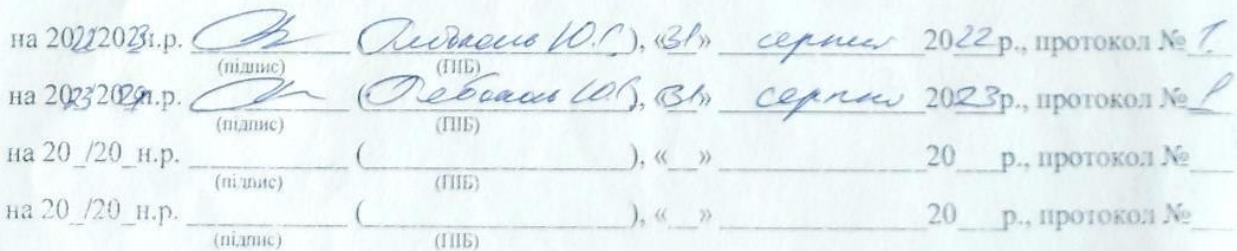 на 2022/2023н.р. ( Ю.С.), «31» серпня 2022 р., протокол № 1
(підпис) (ПІБ)
на 2023/2024н.р. ( Ю.С.), «31» серпня 2023р., протокол № 1
(підпис) (ПІБ)
на 20_/20_н.р. ____ (____), «__» ____ 20__ р., протокол №__
(підпис) (ПІБ)
на 20_/20_н.р. ____ (____), «__» ____ 20__ р., протокол №__
(підпис) (ПІБ)